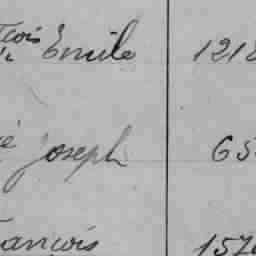 çois Emile 1218
Joseph 65
ançois 157